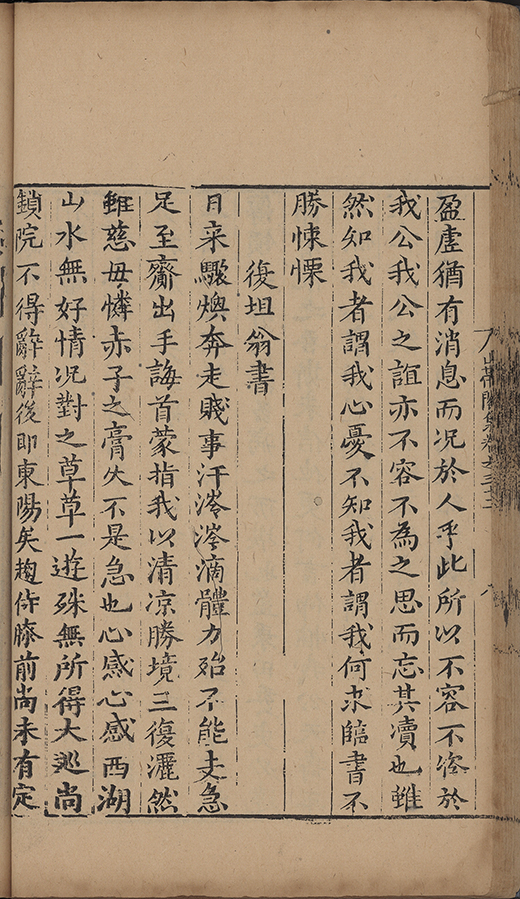 盈虛猶有消息而况於人乎此所以不容不咨於
我公我公之誼亦不容不為之思而忘其瀆也雖
然知我者謂我心憂不知我者謂我何求臨書不
勝悚慄
復坦翁書
日來驟燠奔走賤事汗涔涔滴體力殆不能支急
足至齎出手誨首蒙指我以清凉勝境三復灑然
雖慈毋憐赤子之膏火不是急也心感心感西湖
山水無好情况對之草草一遊殊無所得大廵尚
鎖院不得辭辭後即東陽矣趨侍膝前尚未有定